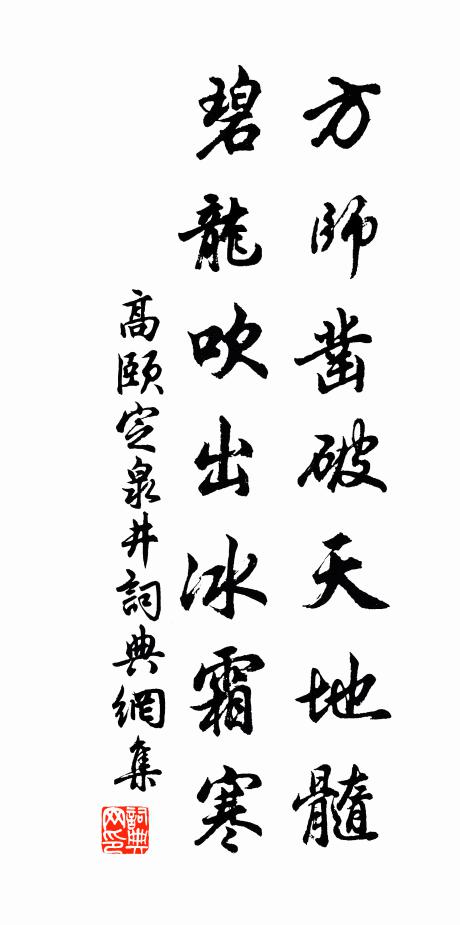 方師凿破天地髓
碧龍吹出冰霜寒
高頤定泉井詞典網集
詞典網印